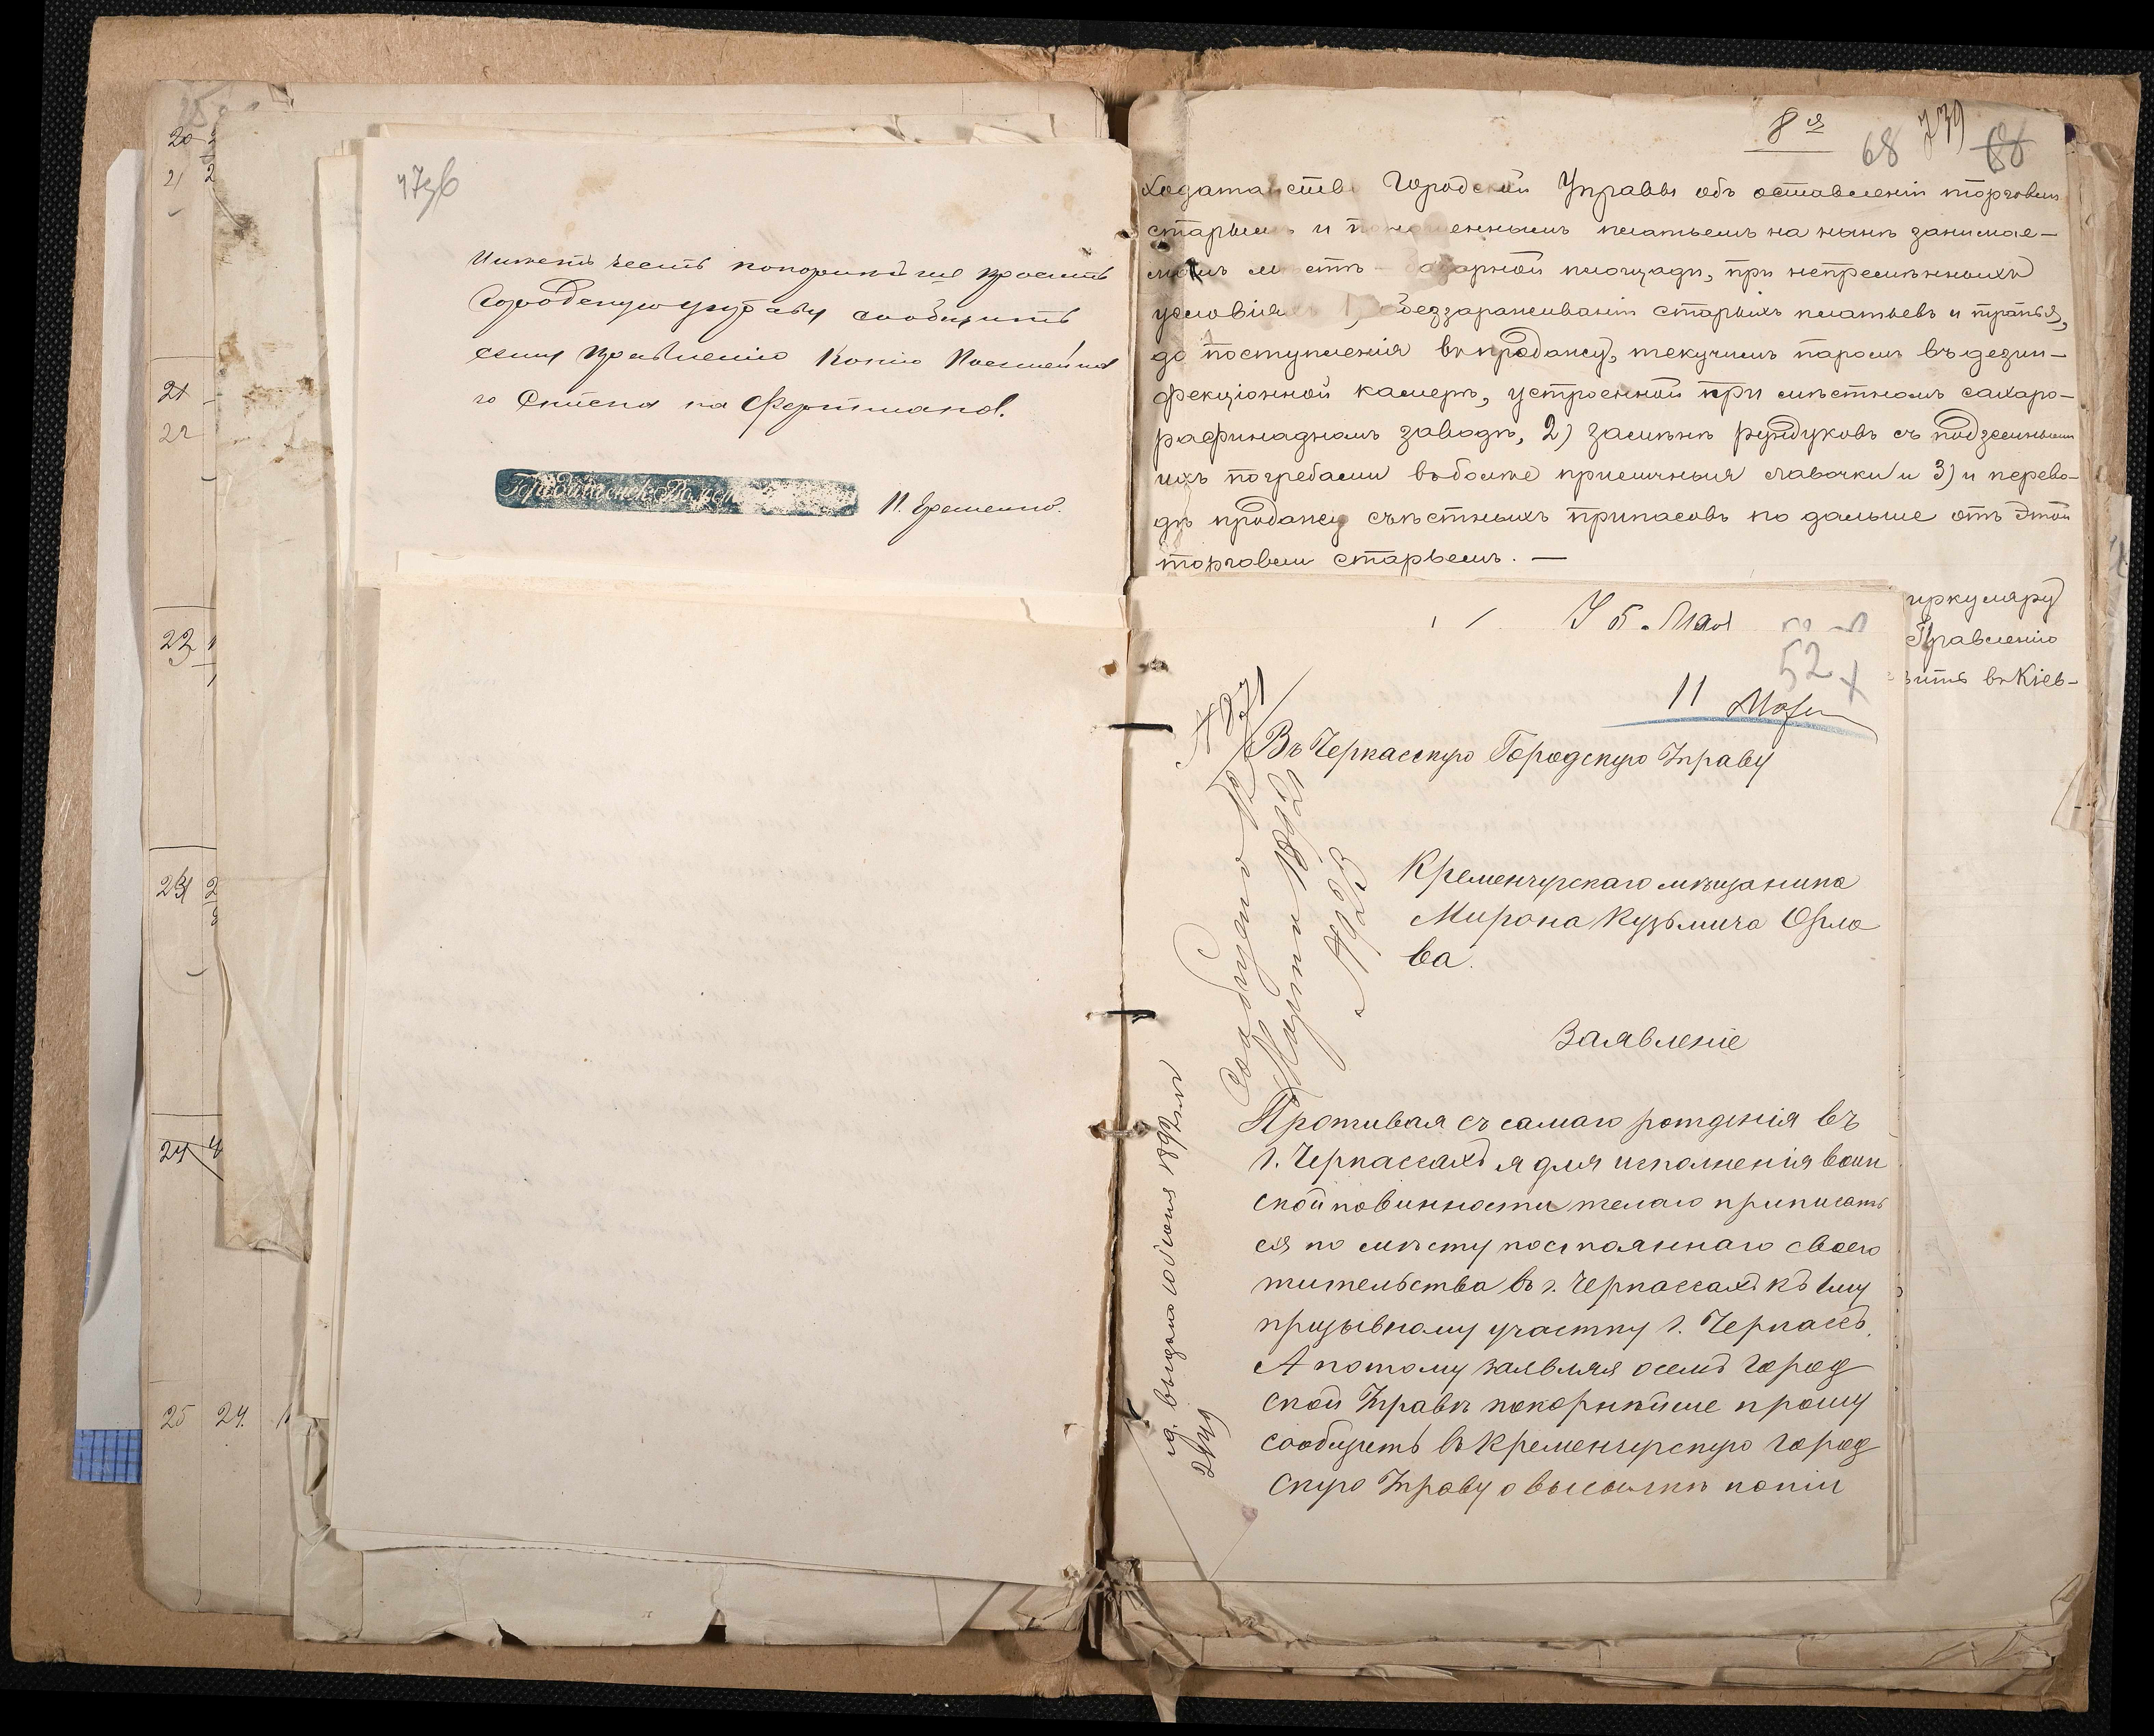 20
21
21
22
23
23
24
25 24.
Имѣетъ честь покорнѣйше просить
Городскую управу сообщить
сему Правленію копію Посемейна
го Списка на
8я
68 739 68
Ходатайство Городской Управы объ оставленіи торговли
старымъ и поношеннымъ платьемъ на нынѣ занимае-
момъ мѣстѣ - базарной площади, при непремѣнныхъ
условіяхъ 1, обеззараживаніи старыхъ платьевъ и тряпья,
до поступленія въ продажу, текучимъ паромъ въ дезин-
фекціонной камерѣ, устроенной при мѣстномъ сахаро-
рафинадномъ заводѣ, 2) замѣнѣ рундуковъ съ подземными
ихъ погребами въ болѣе приличныя лавочки и 3) и перево-
дѣ продажи съѣстныхъ припасовъ по дальше отъ этой
торговли старьемъ. —
иркуляру
Правленію
вить въ Кіев-
5. Мая
52
11
№ 871
Въ Черкасскую Городскую Управу
Кременчугскаго мѣщанина
Мирона Кузьмича Орло
ва.
Заявленіе
Проживая съ самаго рожденія въ
г. Черкассахъ я для исполненія воин
ской повинности желаю приписать
ся по мѣсту постояннаго своего
жительства въ г. Черкассахъ къ 1му
призывному участку г. Черкассъ.
А потому заявляя о семъ город
ской Управѣ покорнѣйше прошу
сообщить въ Кременчугскую город
скую Управу о высылкѣ копіи
Сообщено 12
Марта 1892 г
№ 923
выдано 10 Июня 1892 года